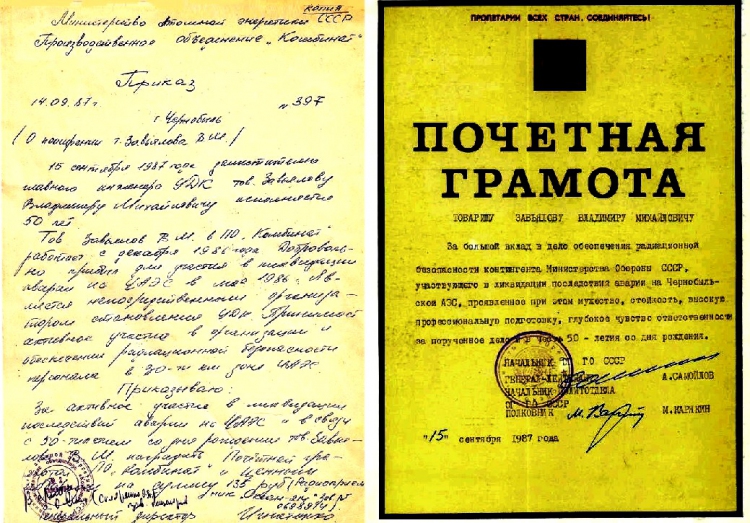 КОПИЯ
Министерство Атомной энергетики СССР
Производственное объединение „Комбинат"
Приказ
14.09.87г № 397
г. Чернобыль
(О поощрении т. Завьялова В.М.)
15 сентября 1987 года заместителю
главного инженера УДК тов. Завьялову
Владимиру Михайловичу исполняется
50 лет
Тов. Завьялов В.М. в ПО „Комбинат"
работает с декабря 1986 года. Доброволь-
но прибыл для участия в ликвидации
аварии на ЧАЭС в мае 1986г. Яв-
ляется непосредственным организа-
тором становления УДК. Принимает
активное участие в организации и
обеспечении радиационной безопасности
персонала в 30-ти км зоне ЧАЭС
Приказываю:
За активное участие в ликвидации
последствий аварии на ЧАЭС и в связи
с 50-летием со дня рождения тов. Завья-
лова В.М. наградить Почётной гра-
мотой ПО „Комбинат" и ценным
на сумму 135 руб
Генеральный директор Игнатенко
ПРОЛЕТАРИИ ВСЕХ СТРАН, СОЕДИНЯЙТЕСЬ!
ПОЧЕТНАЯ
ГРАМОТА
ТОВАРИЩУ ЗАВЬЯЛОВУ ВЛАДИМИРУ МИХАЙЛОВИЧУ
За большой вклад в дело обеспечения радиационной
безопасности контингента Министерства Обороны СССР,
участвующего в ликвидации последствия аварии на Чернобыль-
ской АЭС, проявленное при этом мужество, стойкость, высокую
профессиональную подготовку, глубокое чувство ответственности
за порученное дело и в честь 50 - летия со дня рождения.
НАЧАЛЬНИК ГО СССР
ГЕНЕРАЛ-ЛЕЙТЕНАНТ А.САМОЙЛОВ
НАЧАЛЬНИК ПОЛИТОТДЕЛА
ГО СССР
ПОЛКОВНИК М.КАРЯКИН
"15" сентября 1987 года